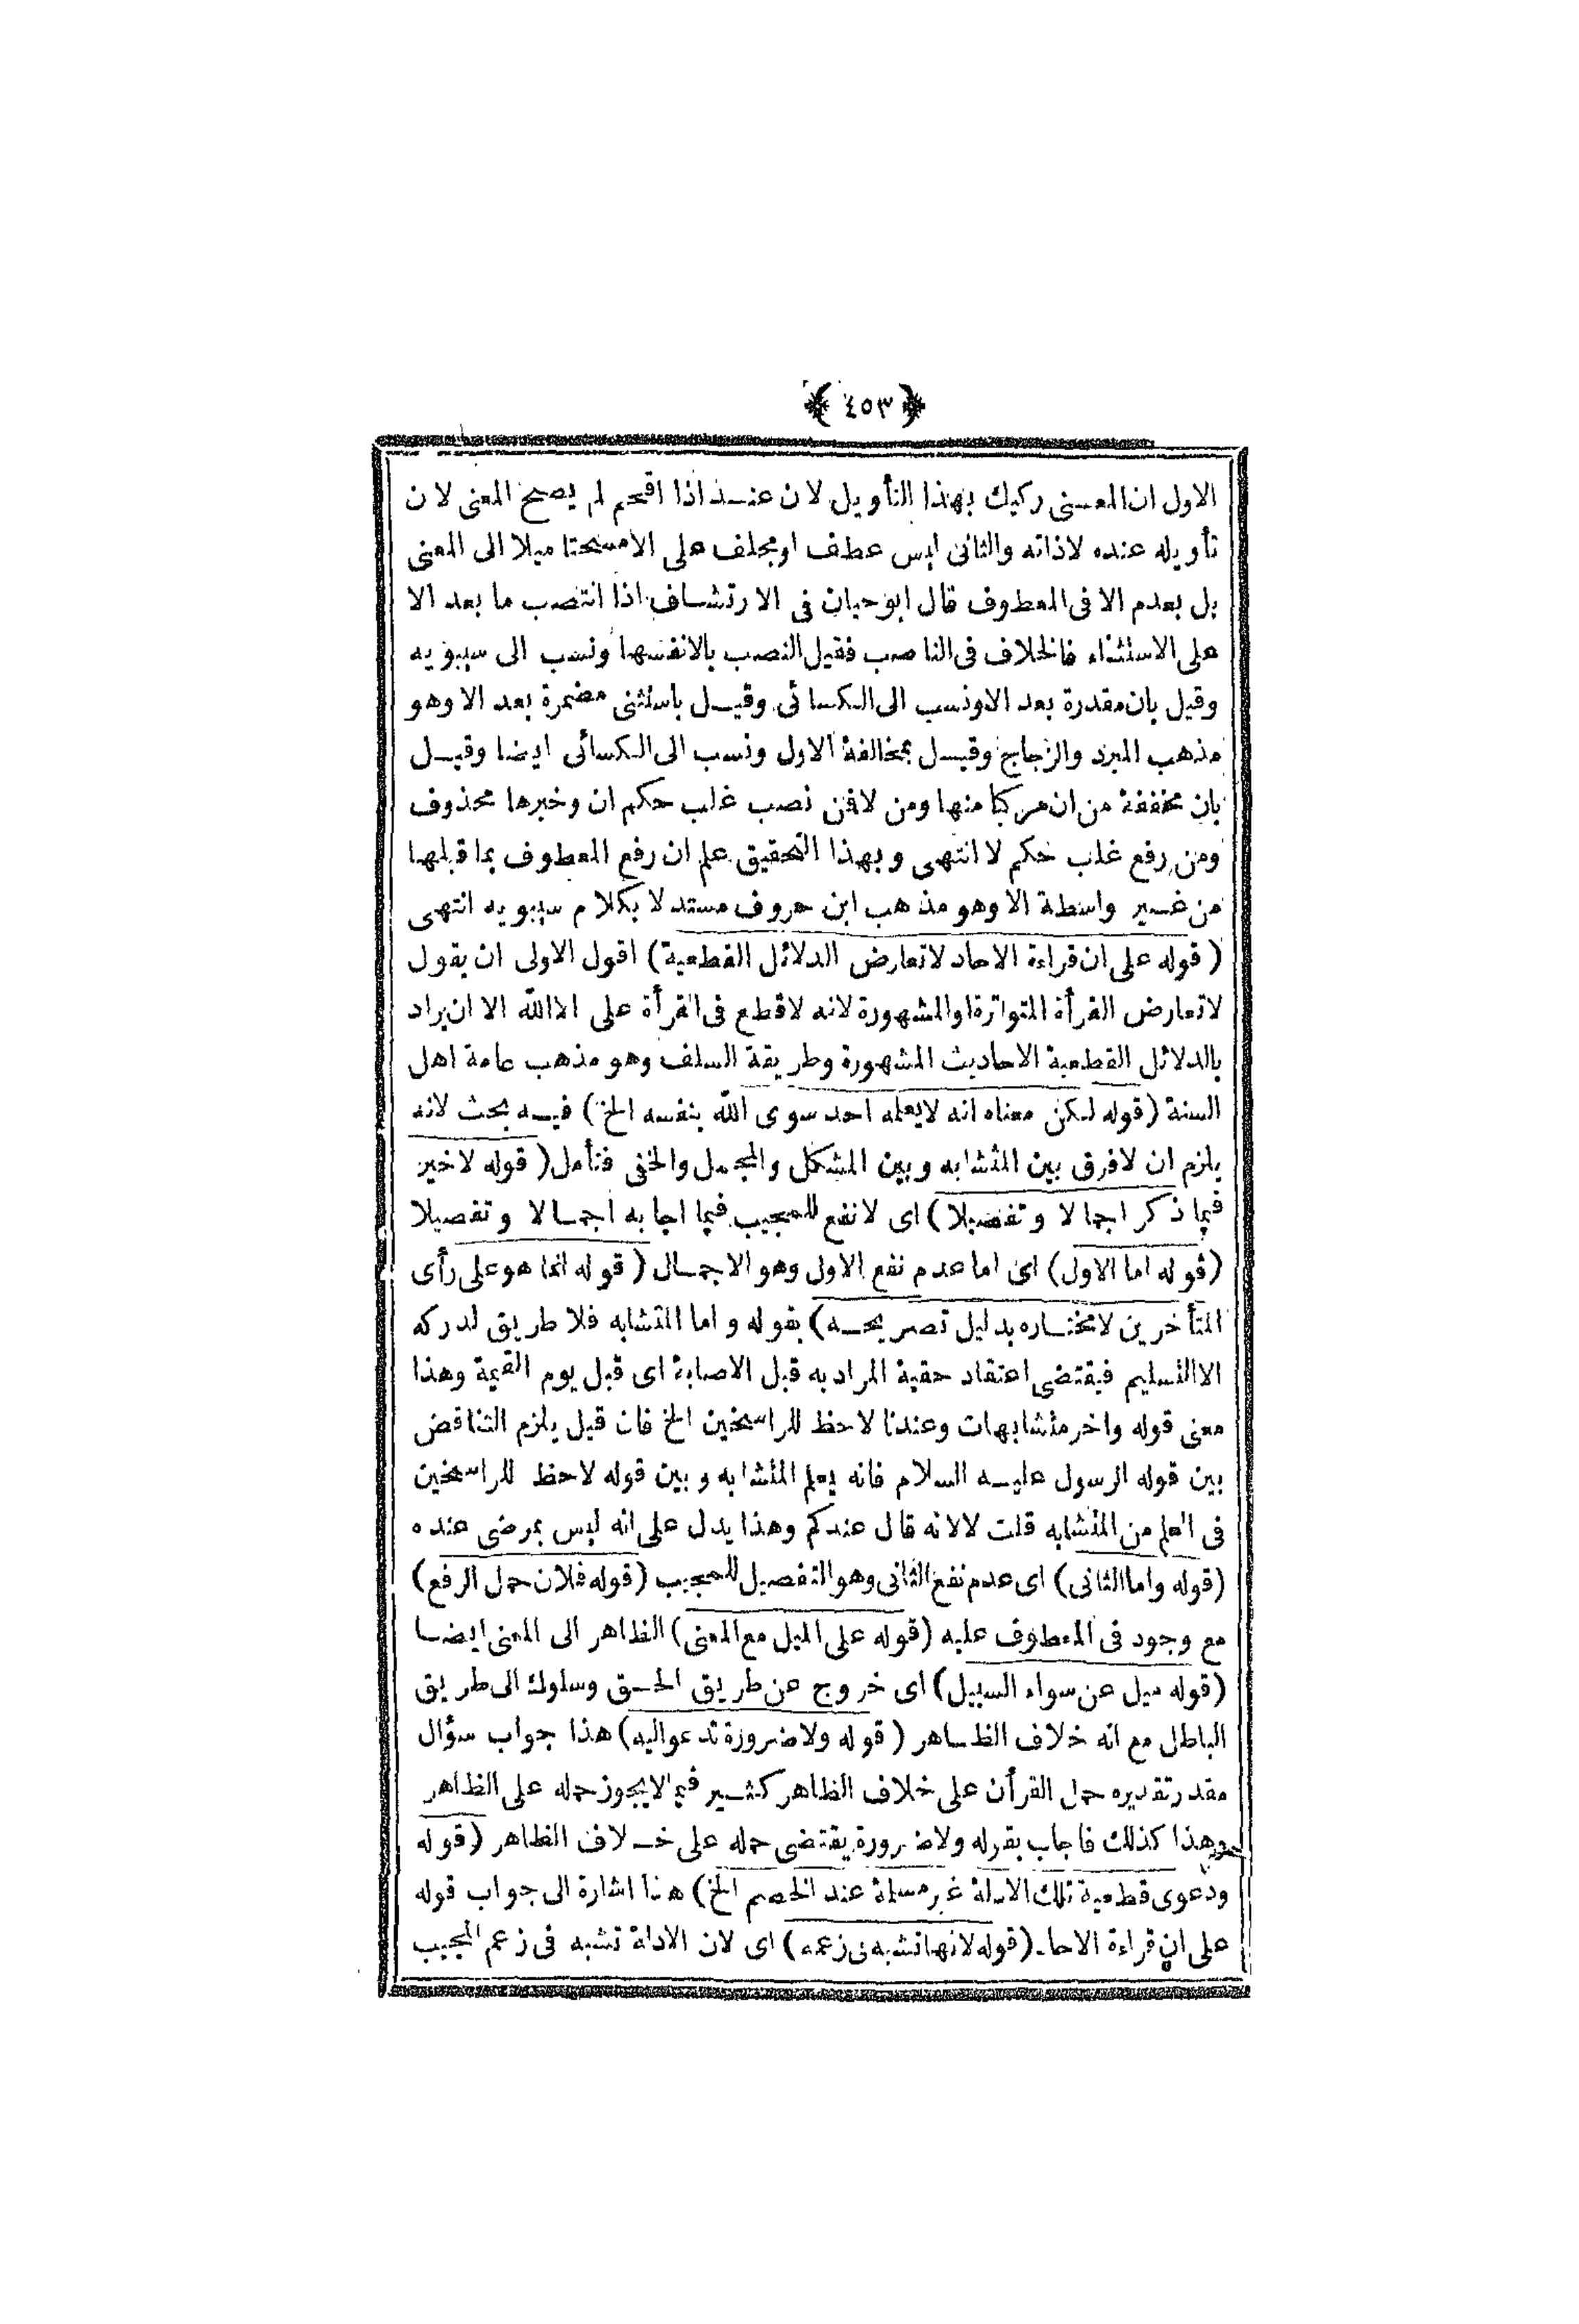 ﴿ ٤٥٣ ﴾
الاول ان المعنى ركيك بهذا التأويل لان عند اذا اقحم لم يصح المعنى لان
تأويله عنده لاذاته والثانى ليس عطف او مجلف على الا مسحتا ميلا الى المعنى
بل بعدم الا فى المعطوف قال ابو حيان فى الارتشاف اذا انتصب ما بعد الا
على الاستثناء فالخلاف فى الناصب فقيل النصب بالا نفسها ونسب الى سيبويه
وقيل بان مقدرة بعد الا ونسب الى الكسائى وقيل باستثنى مضمرة بعد الا وهو
مذهب المبرد والزجاج وقيل بمخالفة الاول ونسب الى الكسائى ايضا وقيل
بان مخففة من ان مركبا منها ومن لا فن نصب غلب حكم ان وخبرها محذوف
ومن رفع غلب حكم لا انتهى وبهذا التحقيق علم ان رفع المعطوف بما قبلها
من غير واسطة الا وهو مذهب ابن خروف مستدلا بكلام سيبويه انتهى
(قوله على ان قراءة الاحاد لا تعارض الدلائل القطعية) اقول الاولى ان يقول
لا تعارض القرأة المتواترة او المشهورة لانه لا قطع فى القرأة على الا الله الا ان يراد
بالدلائل القطعية الاحاديث المشهورة وطريقة السلف وهو مذهب عامة اهل
السنة (قوله لكن معناه انه لا يعلمه احد سوى الله بنفسه الخ) فيه بحث لانه
يلزم ان لا فرق بين المتشابه وبين المشكل والمجمل والخفى فتأمل (قوله لا خير
فيما ذكر اجمالا وتفصيلا) اى لا نفع للمجيب فيما اجابه اجمالا وتفصيلا
(قوله اما الاول) اى اما عدم نفع الاول وهو الاجمال (قوله انما هو على رأى
المتأخرين لا مختاره بدليل تصريحه) بقوله واما المتشابه فلا طريق لدركه
الا التسليم فيقتضى اعتقاد حقية المراد به قبل الاصابة اى قبل يوم القيمة وهذا
معنى قوله واخر متشابهات وعندنا لا حظ للراسخين الخ فان قيل يلزم التناقض
بين قوله الرسول عليه السلام فانه يعلم المتشابه وبين قوله لا حظ للراسخين
فى العلم من المتشابه قلت لا لانه قال عندكم وهذا يدل على انه ليس بمرضى عنده
(قوله واما الثانى) اى عدم نفع الثانى وهو التفصيل للمجيب (قوله فلان حمل الرفع)
مع وجود فى المعطوف عليه (قوله على الميل مع المعنى) الظاهر الى المعنى ايضا
(قوله ميل عن سواء السبيل) اى خروج عن طريق الحق وسلوك الى طريق
الباطل مع انه خلاف الظاهر (قوله ولا ضرورة تدعو اليه) هذا جواب سؤال
مقدر تقديره حمل القرأن على خلاف الظاهر كثير فيما لا يجوز حمله على الظاهر
وهذا كذلك فاجاب بقوله ولا ضرورة يقتضى حمله على خلاف الظاهر (قوله
ودعوى قطعية تلك الادلة غير مسلمة عند الخصم الخ) هذا اشارة الى جواب قوله
على ان قراءة الاحاد (قوله لانها تشبه فى زعمه) اى لان الادلة تشبه فى زعم المجيب